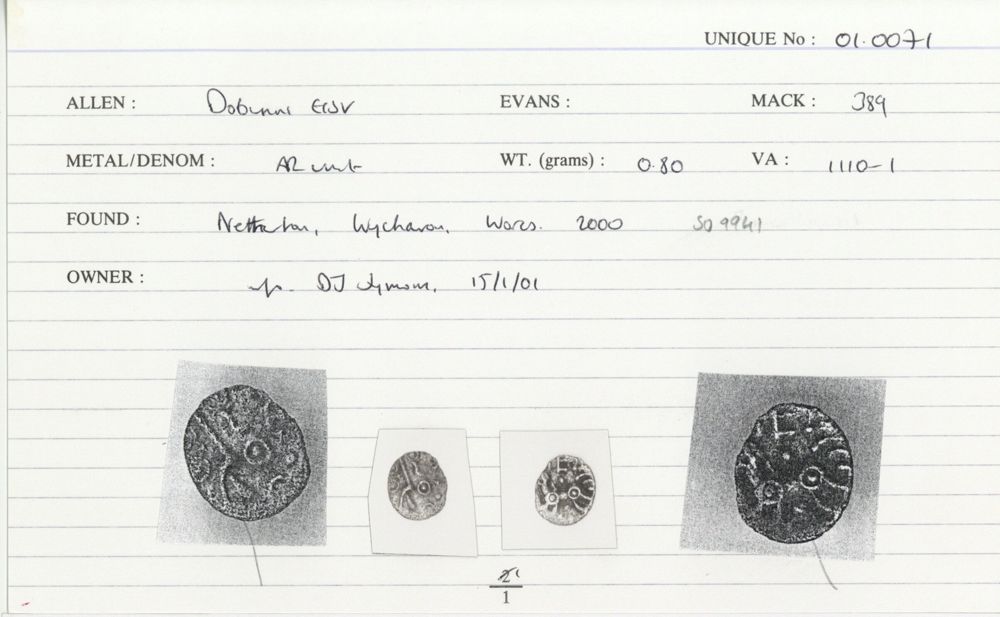 UNIQUE No : 01.0071
ALLEN : Dobunni EISV EVANS : MACK : 389
METAL/DENOM : AR unit WT. (grams) : 0.80 VA : 1110-1
FOUND : Netherton, Wychavon, Worcs. 2000 SO 9941
OWNER : DJ 15/1/01
1